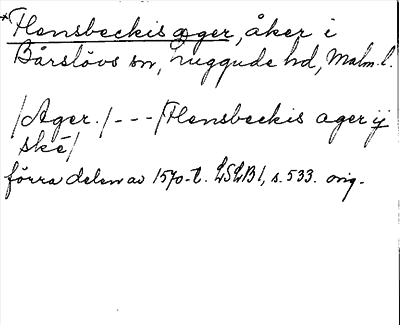 *Flensbeckis ager, åker i
Bårslövs sn, Luggude hd, Malm. l.
/Ager./ - - - /Flensbeckis ager ij
ske/
förra delen av 1570-t. LSLB 1, s. 533. orig.